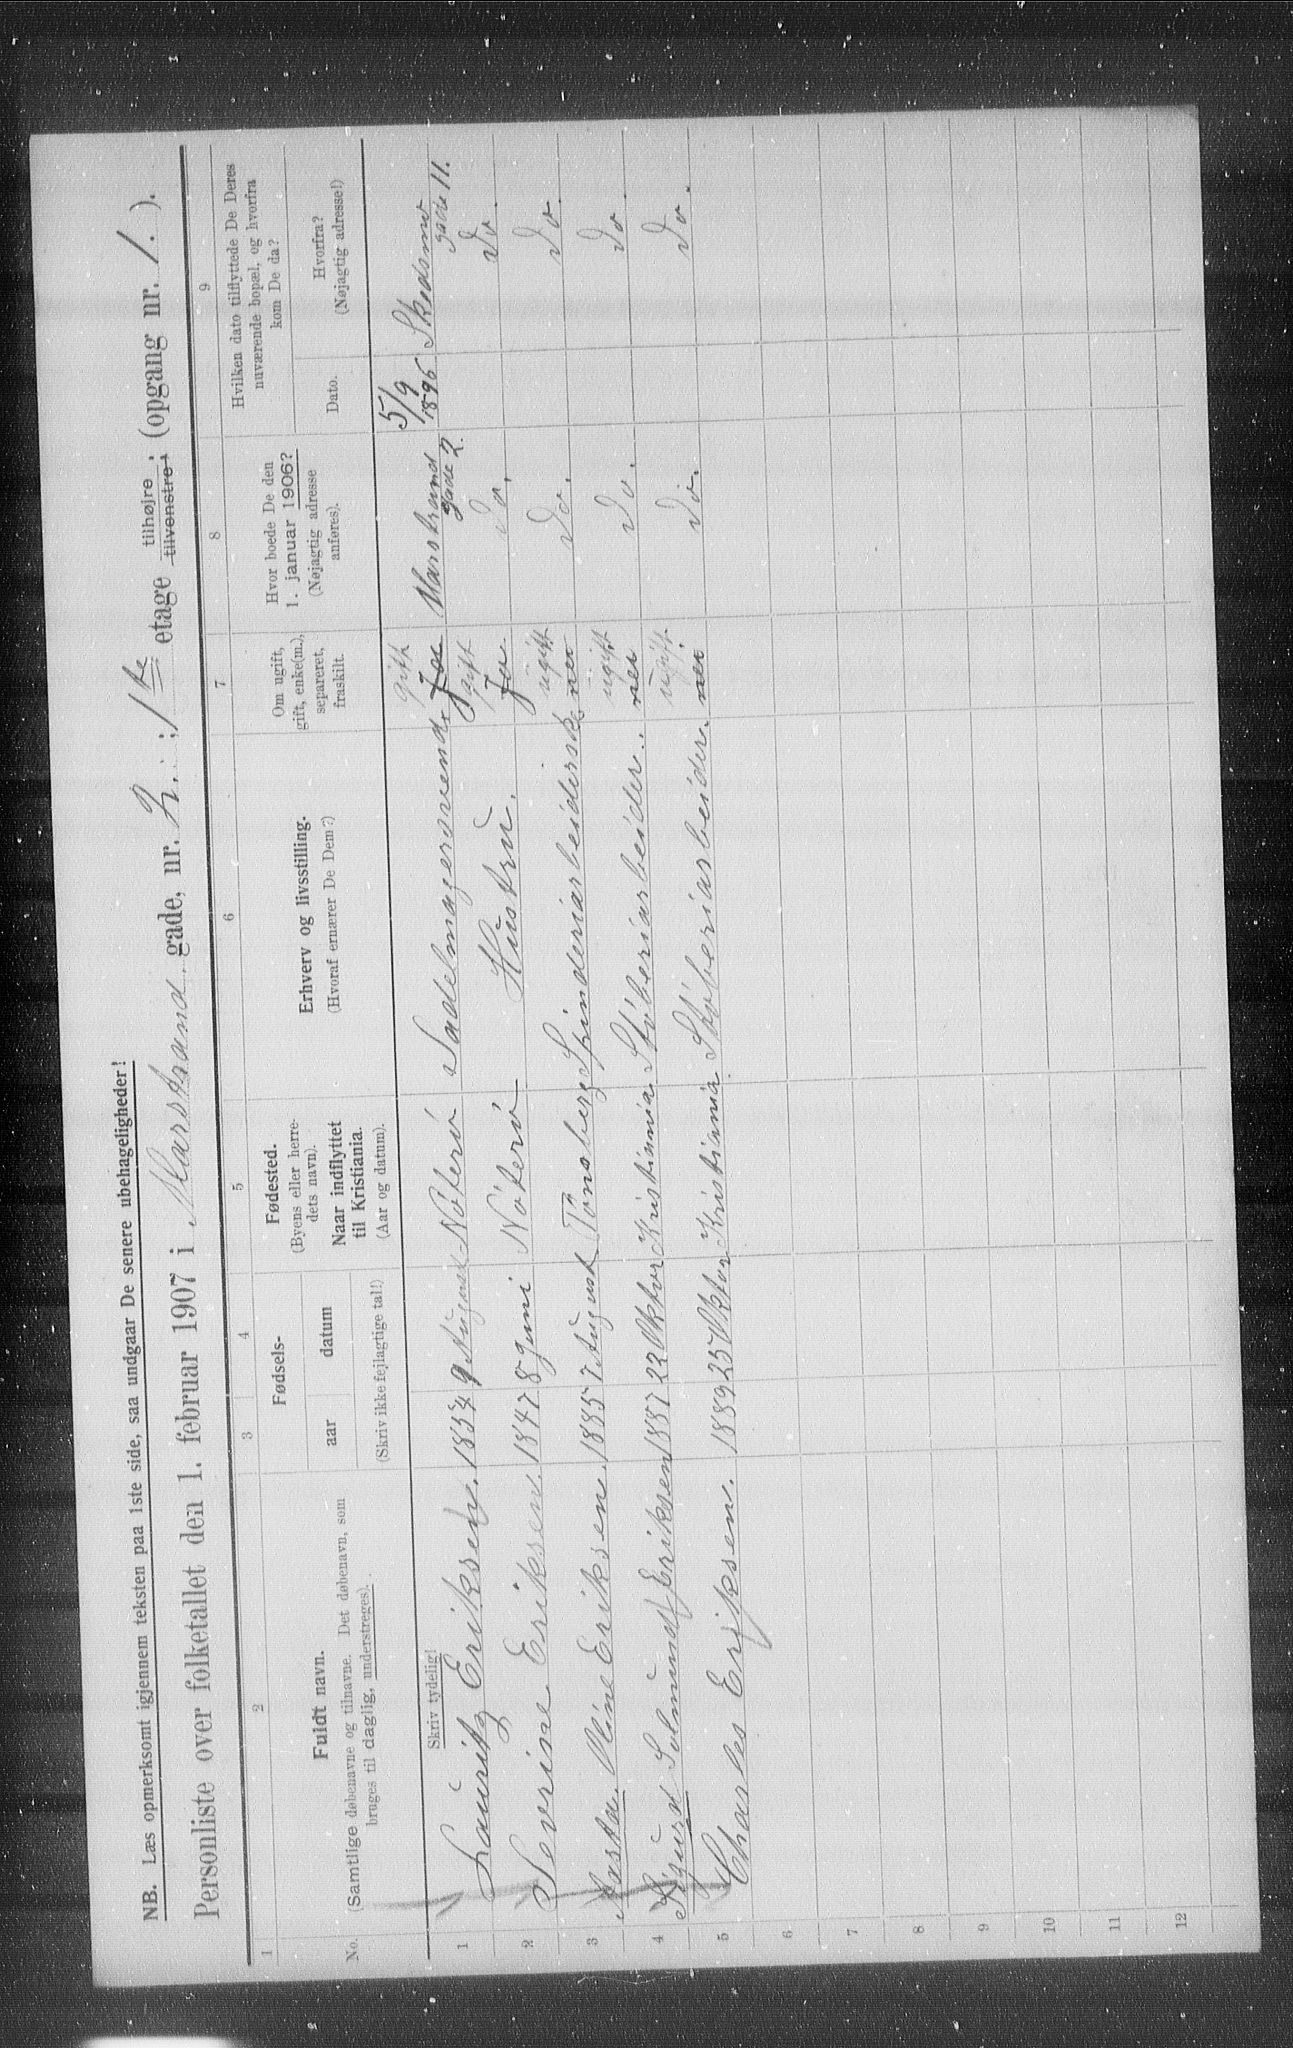 NB. Læs opmerksomt igjennem teksten paa 1ste side, saa undgaar De senere ubehageligheder!
Personliste over folketallet den 1. februar 1907 i Marstrand gade, nr. 2. ; 1ste etage tilhøjre ; tilvenstre ; (opgang nr. 1. ).
1 2 3 4 5 6 7 8 9
No.
Fuldt navn.
(Samtlige døbenavne og tilnavne. Det døbenavn, som
bruges til daglig, understreges).
Fødsels-
aar datum
(Skriv ikke fejlagtige tal!)
Fødested.
(Byens eller herre-
dets navn).
Naar indflyttet
til Kristiania.
(Aar og datum).
Erhverv og livsstilling.
(Hvoraf ernærer De Dem?)
Om ugift,
gift, enke(m.),
separeret,
fraskilt.
Hvor boede De den
1. januar 1906?
(Nøjagtig adresse
anføres).
Hvilken dato tilflyttede De Deres
nuværende bopæl, og hvorfra
kom De da?
Dato.
Hvorfra?
(Nøjagtig adresse!)
Skriv tydelig!
1 Lauritz Eriksen. 1854 9 August Nøterø Sadelmagersvend gift Ja Marstrand gade 2 5/9 1896 Skedsmo gade 11.
2 Severine Eriksen. 1847 8 juni Nøterø Hustru. gift Ja Do. Do.
3 Aasta Oline Eriksen. 1885 7 August Tønsberg Spinderiarbeiderske ugift nei Do. Do.
4 Sigurd Solmund Eriksen 1887 22 Oktor Kristiania Støberiarbeider. ugift nei Do. Do.
5 Charles Eriksen. 1889 25 Oktor Kristiania Støberiarbeider. ugift nei Do. Do.
6
7
8
9
10
11
12